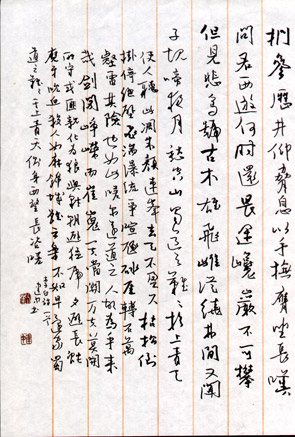 捫參歷井仰脅息以手撫膺坐長嘆
問君西遊何時還畏途巉巖不可攀
但見悲鳥號古木雄飛雌從繞林間又聞
子規啼夜月愁空山蜀道之難難於上青天
使人聽此凋朱顏連峰去天不盈尺枯松倒
掛倚絕壁飛湍瀑流爭喧豗砯崖轉石萬
壑雷其險也如此嗟爾遠道之人胡為乎來
哉劍閣崢嶸而崔嵬一夫當關萬夫莫開
所守或匪親化為狼與豺朝避猛虎夕避長蛇
磨牙吮血殺人如麻錦城雖云樂不如早還家蜀
道之難難於上青天側身西望長咨嗟